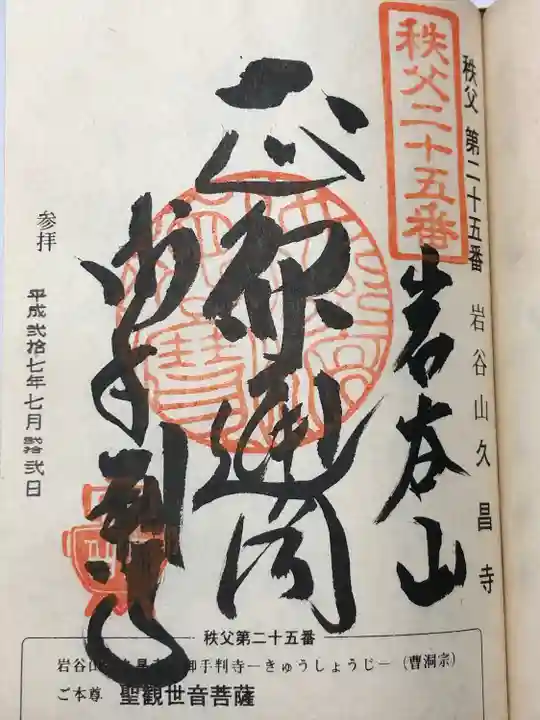 秩父二十五番
秩父 第二十五番 岩谷山久昌寺
岩谷山
正取通円
御手判寺
参拝 平成弐拾七年七月弐拾弐日
秩父第二十五番
岩谷山 御手判寺ーきゅうしょうじー (曹洞宗)
ご本尊 聖観世音菩薩